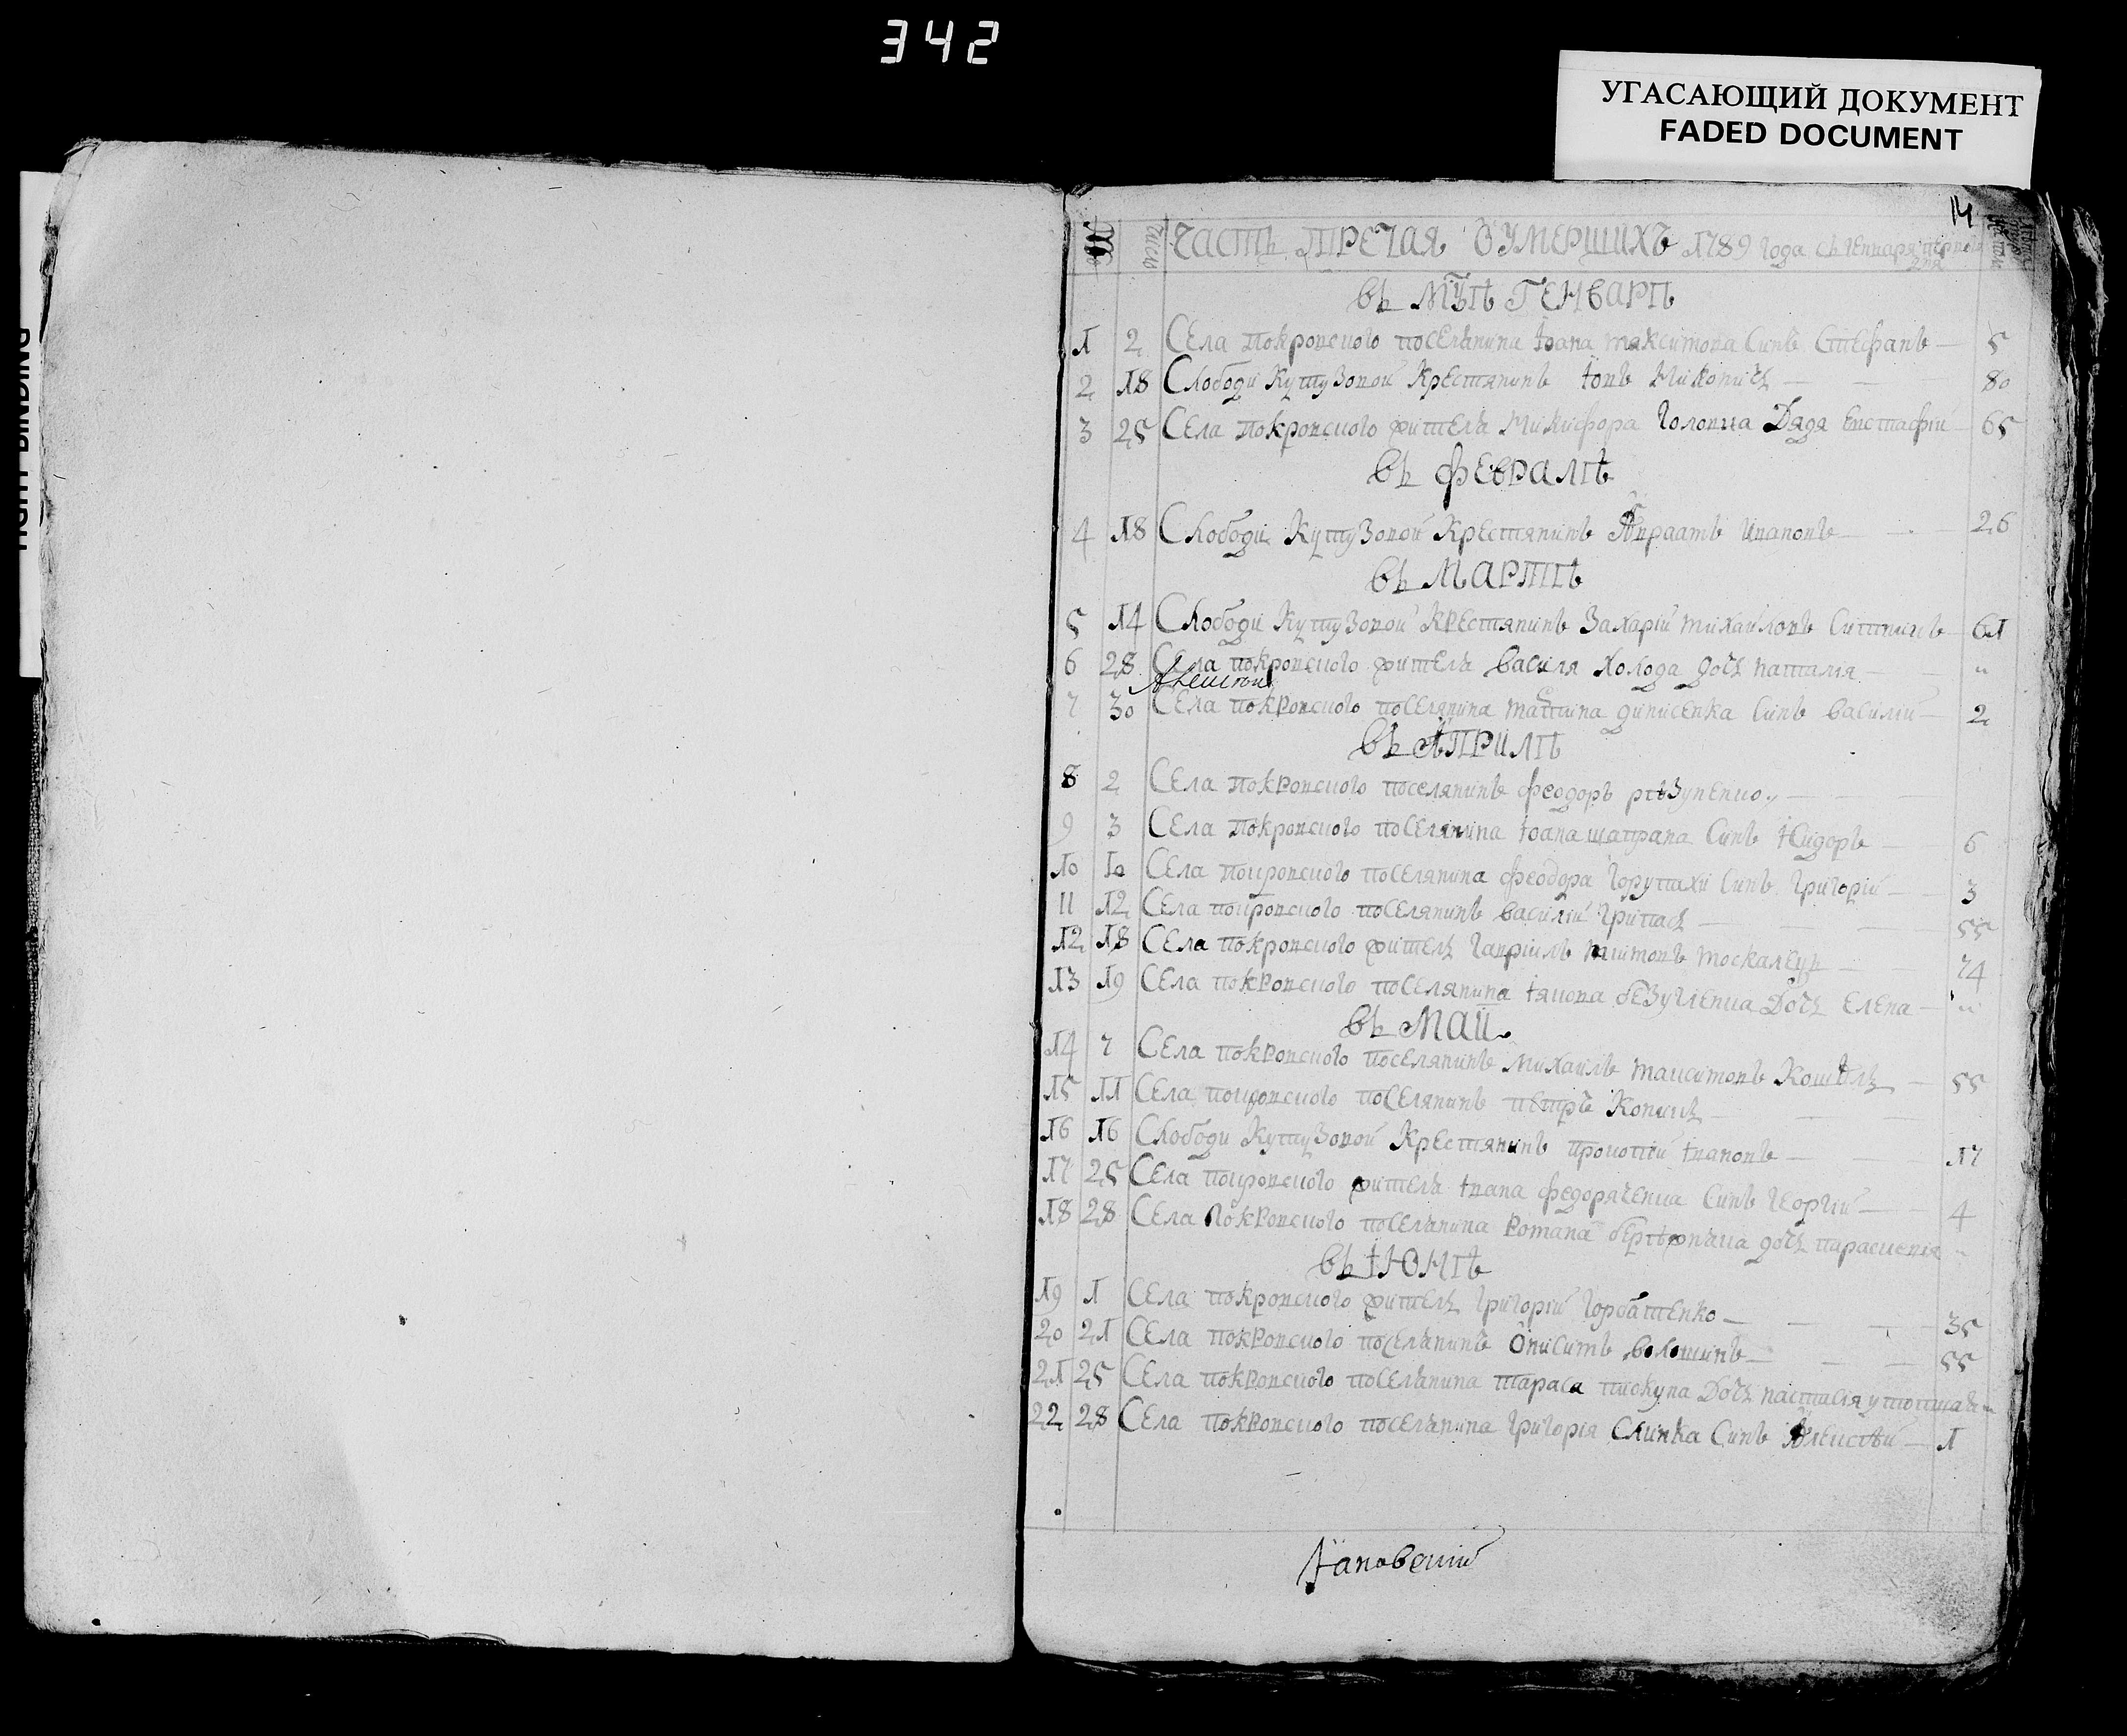 342
УГАСАЮЩИЙ ДОКУМЕНТ
FADED DOCUMENT
14
число Часть третая Оумершихъ 1789 года съ генваря первого дня
въ мцѣ Генварѣ
1 2 Села покровского поселянина Іоана максимова Синъ Стефанъ — 5
2 18 Слободи Кутузовой Крестянинъ Іовъ — 80
3 25 Села покровского жителя Никифора Головка Дядя Евстафiи — 65
въ февралѣ
4 18 Слободи Кутузовой Крестянинъ Авраамъ Ивановъ — 26
въ Мартѣ
5 14 Слободи Кутузовой Крестянинъ Захарiй михайловъ — 61
6 28 Села покровского жителя василя Холода дочь наталiя — "
Алексѣй
7 30 Села покровского поселянина динисенка Синъ василiй — 2
въ Априлѣ
8 2 Села покровского поселянинъ феодоръ рѣзуненко —
9 3 Села покровского поселянина Іоана шаправа Синъ Ісидоръ — 6
10 10 Села покровского поселянина феодора Синъ Григорiй — 3
11 12 Села покровского поселянинъ василiй — 55
12 18 Села покровского житель Гаврiилъ москалецъ — 74
13 19 Села покровского поселянина Іякова безугленка Дочь Елена — "
въ Маи
14 7 Села покровского поселянинъ Михаилъ максимовъ Кошѣль — 55
15 11 Села покровского поселянинъ петръ —
16 16 Слободи Кутузовой Крестянинъ прокопiй Івановъ — 17
17 25 Села покровского жителя Івана федоряченка Синъ Георгiй — 4
18 28 Села Покровского поселянина Романа дочь парасковiя "
въ Іюнѣ
19 1 Села покровского житель Григорiй Горбатенко — 35
20 21 Села покровского поселянинъ Онисимъ волошинъ — 55
21 25 Села покровского поселянина тараса пискуна Дочь настасiя утопшая "
22 28 Села покровского поселянина Григорiя Слинка Синъ Алексѣй — 1
Яновский